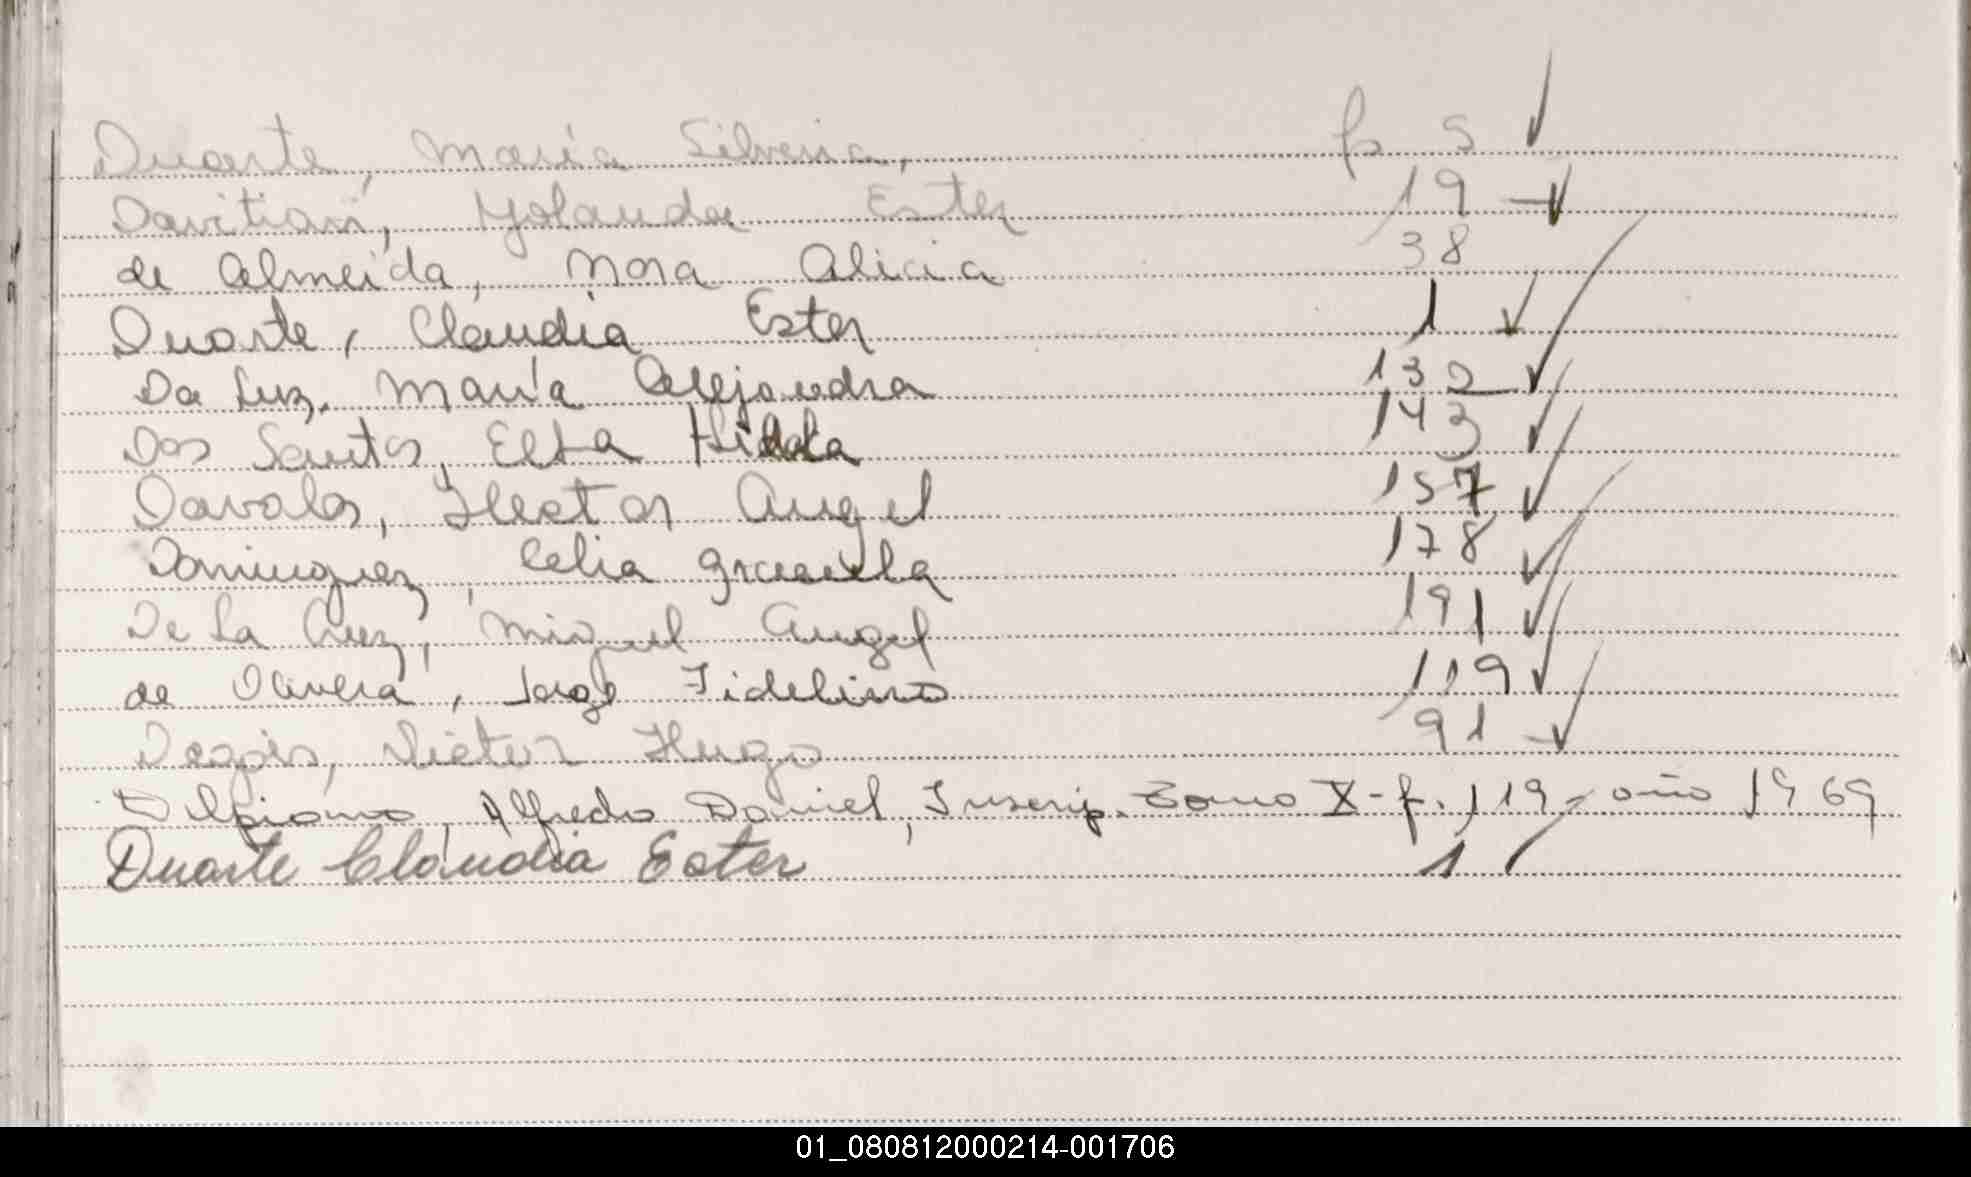 Duarte, María Silveria, fs 5
Davitian, Yolanda Ester 19
de Almeida, Nora Alicia 38
Duarte, Claudia Ester 1
Da Luz, María Alejandra 132
Dos Santos, Elsa Hilda 143
Davalos, Hector Angel 157
Dominguez, Celia Graciela 178
De La Cruz, Miguel Angel 191
de Olivera, Jorge Fidelino 119
Victor Hugo 91
Delpiano, Alfredo Daniel, Inscrip. Tomo X - f. 119 - año 1969
Duarte Claudia Ester 1
01_080812000214-001706